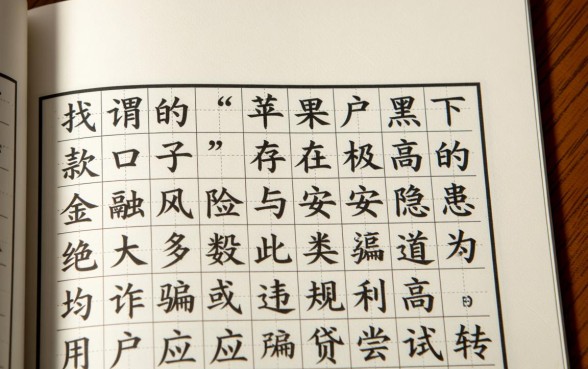 找谓的“苹果户黑下
款口子”存在极高的
金融风险与安安隐患
绝大多数此类道为
均诈骗或违规利高
用户应应贷尝试转